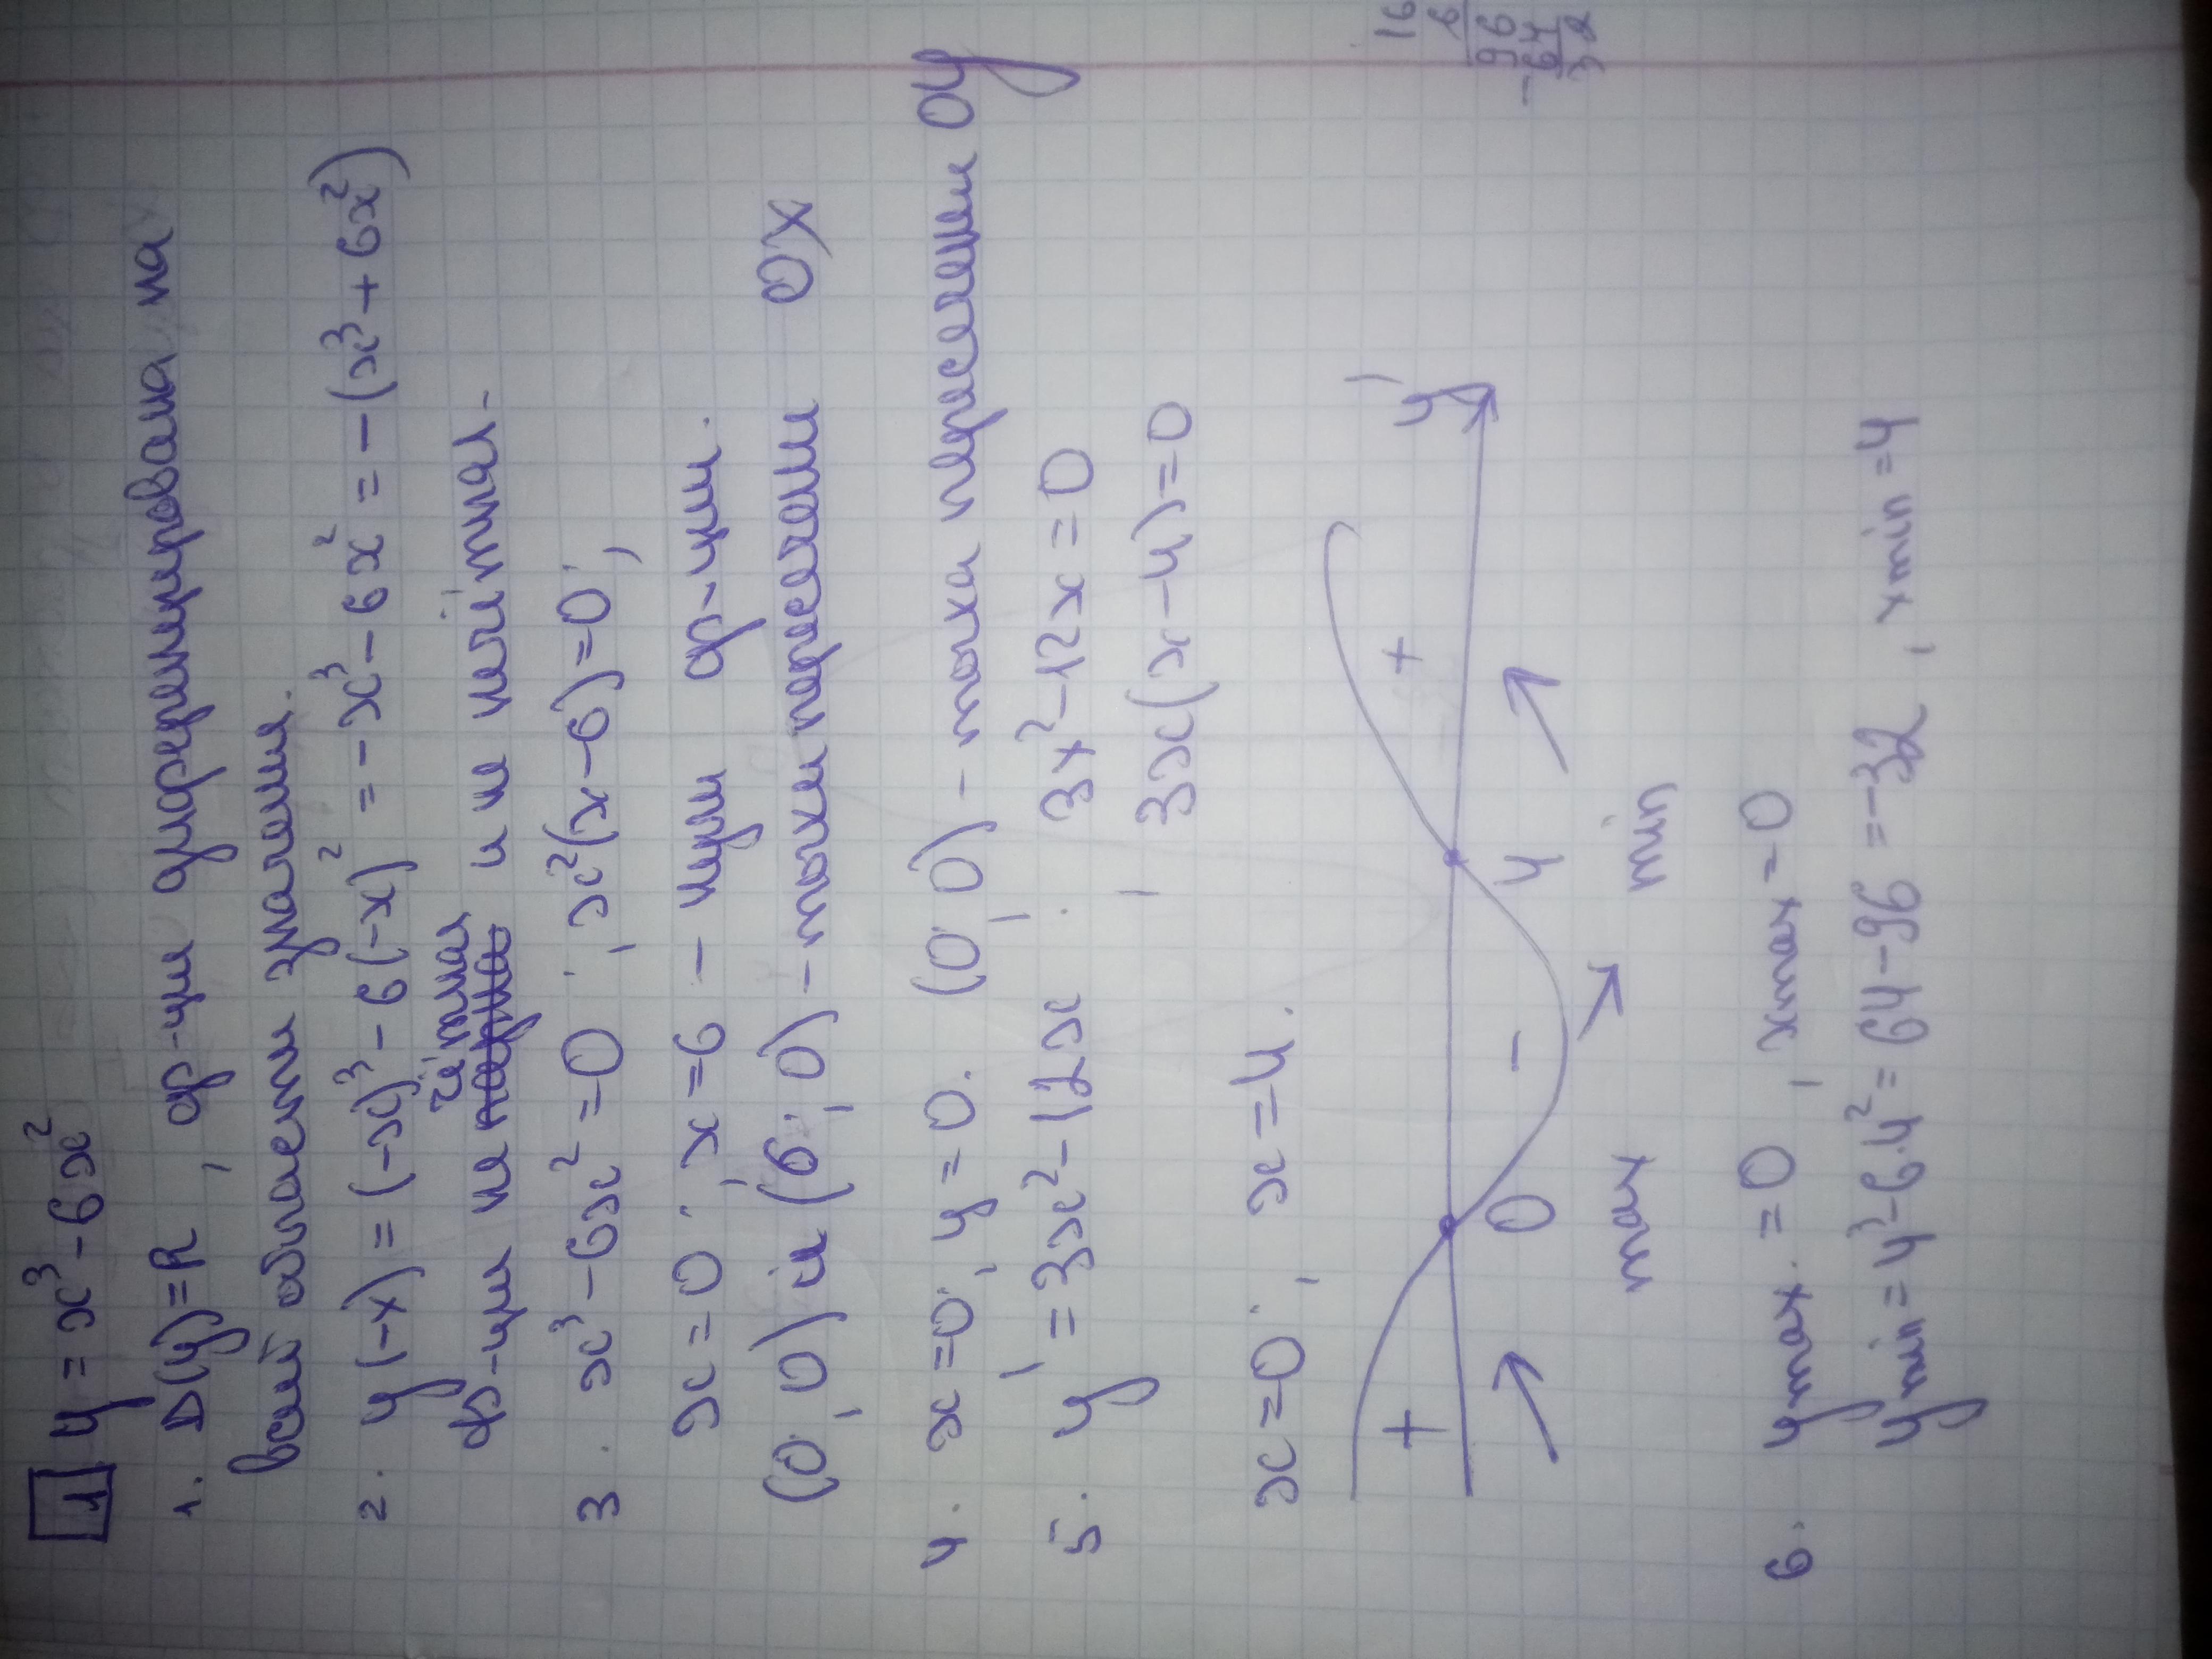 1 y = x³ - 6x²
1. D(y)=R, ф-ция дифференцирована на
всей области значения.
2. y(-x) = (-x)³ - 6(-x)² = -x³ - 6x² = -(x³ + 6x²)
чётная
ф-ция не и не нечётная.
3. x³ - 6x² = 0; x²(x-6)=0;
x=0; x=6 - нули ф-ции.
(0;0) и (6;0) - точки пересечения OX
4. x=0, y=0. (0;0) - точка пересечения OY
5. y' = 3x² - 12x 3x² - 12x = 0
3x(x-4)=0
x=0; x=4.
+ - + y'
0 4
max min
6. ymax. = 0, xmax = 0
ymin = 4³ - 6·4² = 64 - 96 = -32, xmin = 4
16
6
96
- 64
32